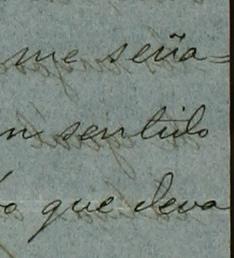 me seña=
n sentido
o que deva